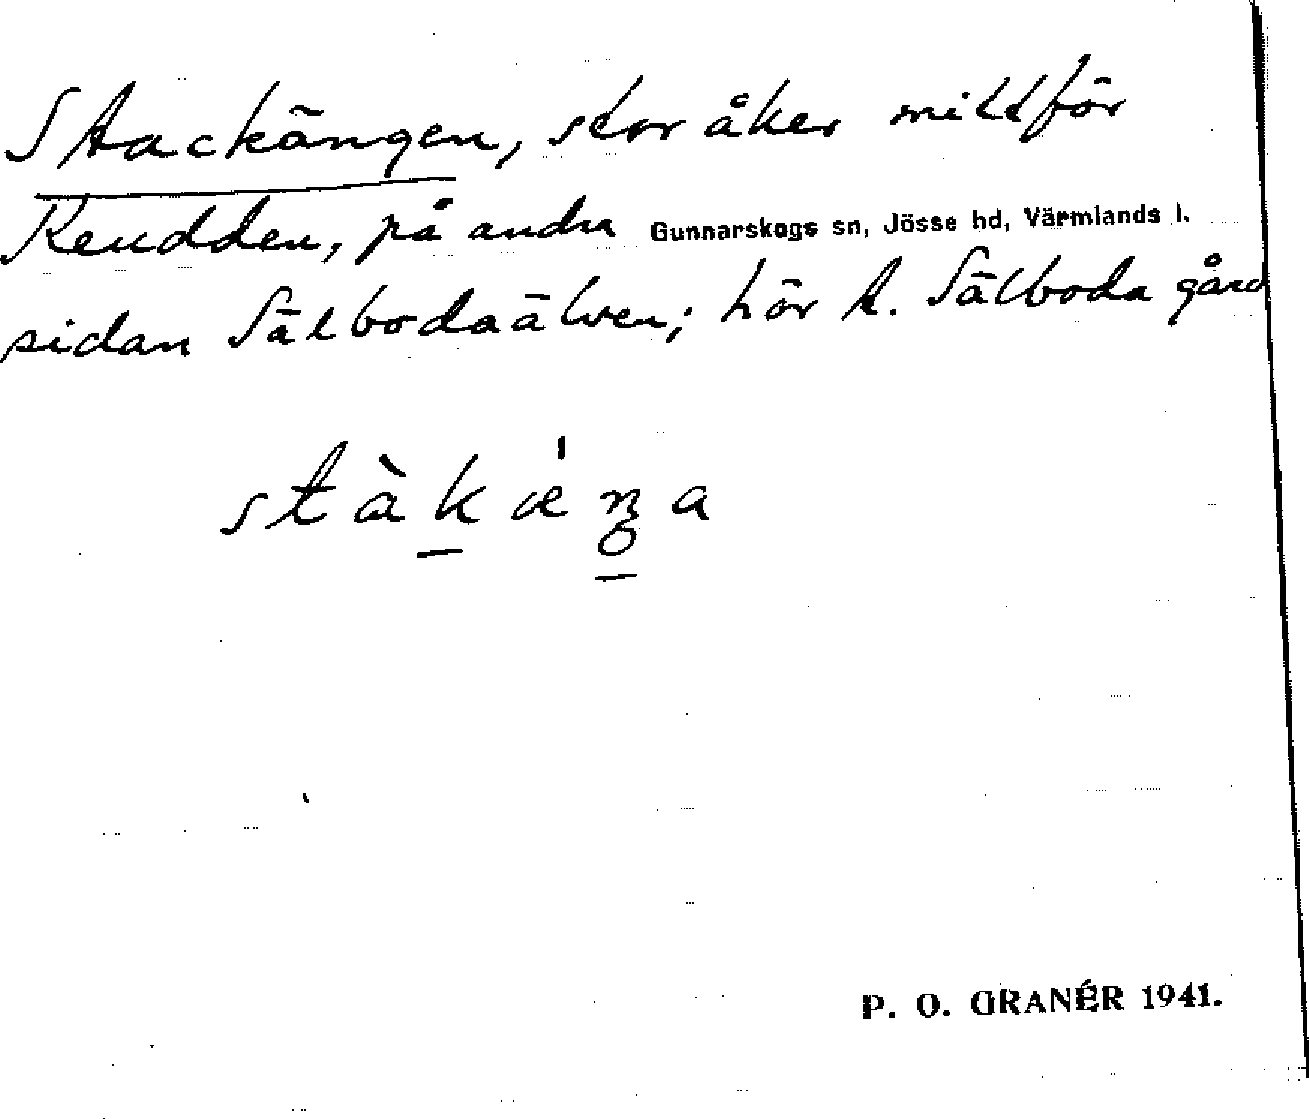 Stackängen, stor åker mittför
Renudden, på andra Gunnarskogs sn, Jösse hd, Värmlands l.
sidan Sälbodaälven; hör t. Sälboda gård
stàkǽŋa
P. O. GRANÉR 1941.